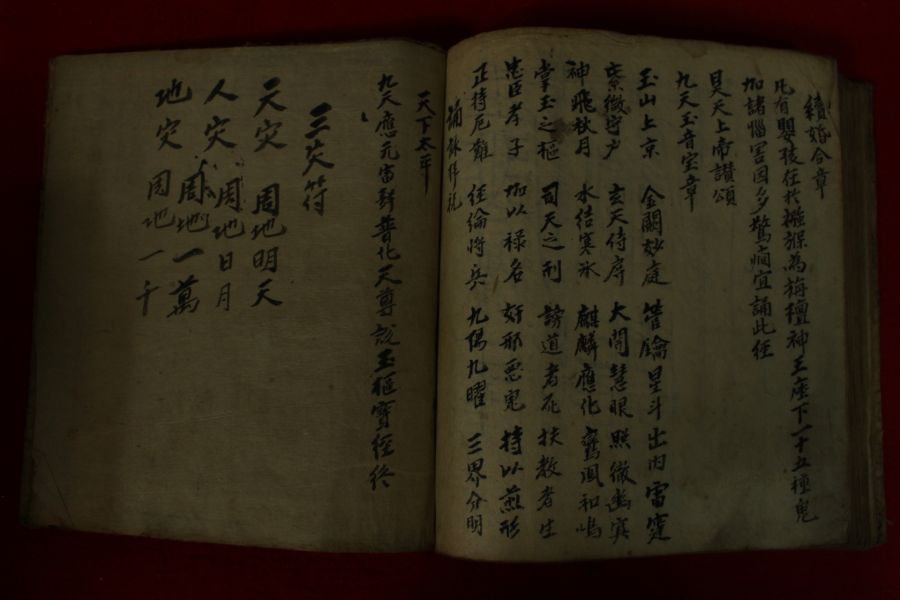 續婚合章
凡有嬰孩在於襁褓為旃檀神王座下一十五種鬼
加諸惱害因多驚癇宜誦此經
昊天上帝讃頌
九天玉音宝章
玉山上京 金闕妙庭 管鑰星斗 出內雷霆
紫微守户 玄天侍房 大開慧眼 照徹幽冥
神飛秋月 水结寒氷 麒麟應化 鸞鳳和鳴
掌玉之樞 司天之刑 謗道者死 扶教者生
忠臣孝子 加以禄名 奸邪惡鬼 持以 形
正持厄難 經綸將兵 九陽九曜 三界分明
誦 拜祝
天下太平
九天應元雷聲普化天尊説玉樞寶經终
三灾符
天灾 周地明天
人灾 周地日月
周地一萬
地灾 周地一千